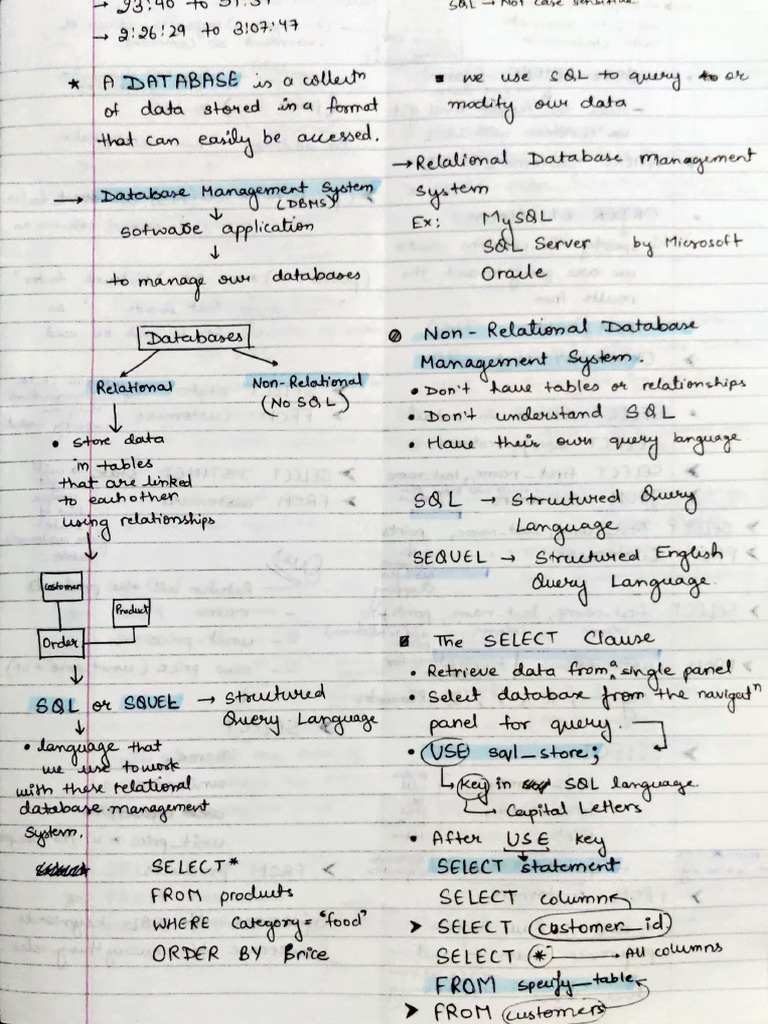 → 23:40 to 51:51
→ 2:26:29 to 3:07:47
★ A DATABASE is a collectn
of data stored in a format
that can easily be accessed.
→ Database Management System
(DBMS)
↓
sotware application
↓
to manage our databases
Databases
Relational
Non-Relational
(No SQL)
• Store data
in tables
that are linked
to each other
using relationships
Customer
Product
Order
SQL or SQUEL → Structured
Query Language
• language that
we use to work
with these relational
database management
system.
SELECT *
FROM products
WHERE Category = "food"
ORDER BY Price
SQL → Not case sensitive
▪ we use SQL to query or
modify our data
→ Relational Database Management
System
Ex: MySQL
SQL Server by Microsoft
Oracle
Non-Relational Database
Management System.
• Don't have tables or relationships
• Don't understand SQL
• Have their own query language
SQL → Structured Query
Language
SEQUEL → Structured English
Query Language.
The SELECT Clause
• Retrieve data from a single panel
• Select database from the navigatn
panel for query.
• USE sql_store;
key in SQL language
Capital Letters
• After USE key
SELECT statement
SELECT column
➤ SELECT customer_id
SELECT * → All columns
FROM specify_table
➤ FROM customers